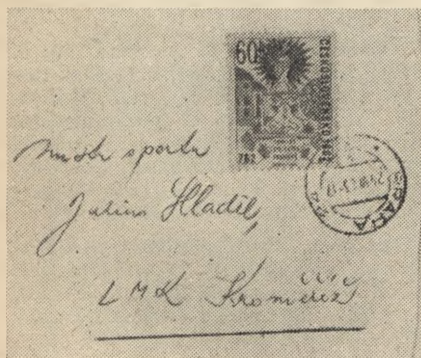 60
ČESKOSLOVENSKO
Mistr sportu
Julius Hladil,
LMK Kroměříž
PRAHA